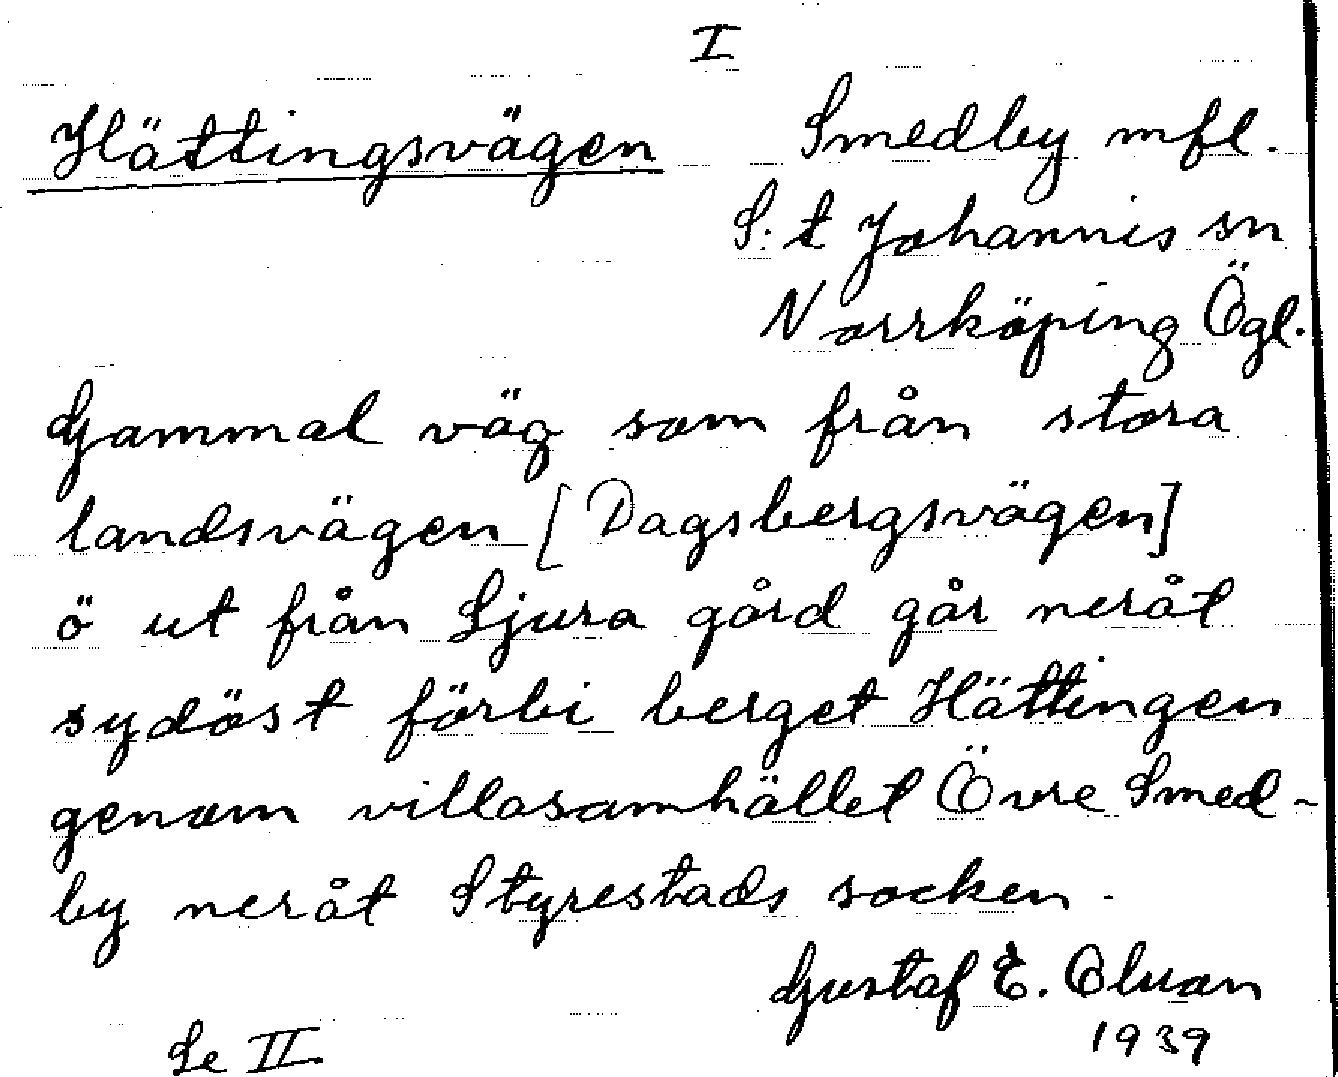 I
Hättingsvägen Smedby mfl.
S:t Johannis sn
Norrköping Ögl.
Gammal väg som från stora
landsvägen [Dagsbergsvägen]
ö ut från Ljura gård går neråt
sydöst förbi berget Hättingen
genom villasamhället Övre Smed-
by neråt Styrestads socken.
Gustaf E. Oluan
1939
Se II.